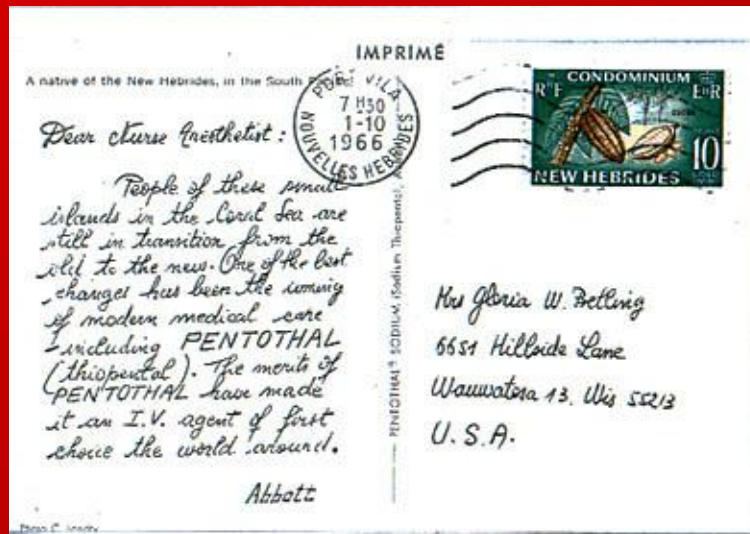 IMPRIMÉ
A native of the New Hebrides, in the South
PORT VILA
7 H30
1-10
1966
NOUVELLES HEBRIDES
CONDOMINIUM
RF
EIIR
10
NEW HEBRIDES
Dear Nurse Anesthetist:
People of these small
islands in the Coral Sea are
still in transition from the
old to the new. One of the best
changes has been the coming
of modern medical care
- including PENTOTHAL
(thiopental). The merits of
PENTOTHAL have made
it an I.V. agent of first
choice the world around.
Abbott
PENTOTHAL® SODIUM (Sodium Thiopental,
Mrs Gloria W.
6651 Hillside Lane
Wauwatosa 13, Wis 55213
U.S.A.